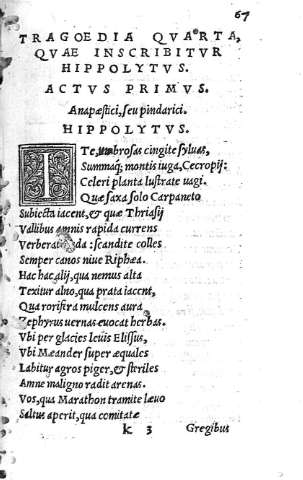 67
TRAGOEDIA QVARTA,
QVAE INSCRIBITVR
HIPPOLYTVS.
ACTVS PRIMVS.
Anapæstici, seu pindarici.
HIPPOLYTVS.
ITe, umbrosas cingite syluas,
Summaq; montis iuga, Cecropij:
Celeri planta lustrate uagi.
Quæ saxa solo Carpaneto
Subiecta iacent, & quæ Thriasij
Vallibus amnis rapida currens
Verberat unda: scandite colles
Semper canos niue Riphæa.
Hac hac alij, qua nemus alta
Texitur alno, qua prata iacent,
Qua rorifera mulcens aura
Zephyrus uernas euocat herbas.
Vbi per glacies leuis Elissus,
Vbi Mæander super æquales
Labitur agros piger, & steriles
Amne maligno radit arenas.
Vos, qua Marathon tramite læuo
Saltus aperit, qua comitatæ
k 3 Gregibus